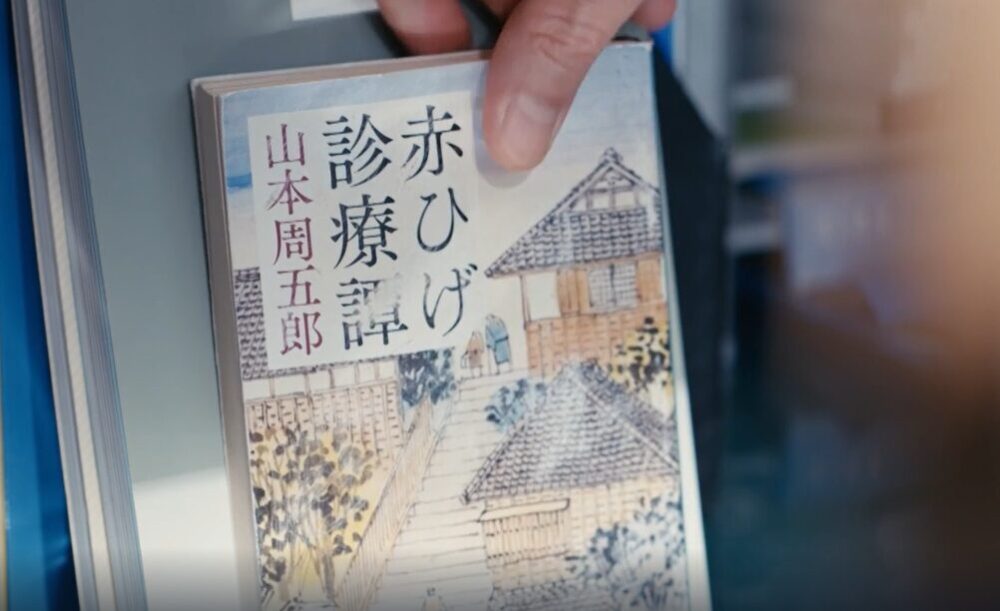 赤ひげ
診療譚
山本周五郎